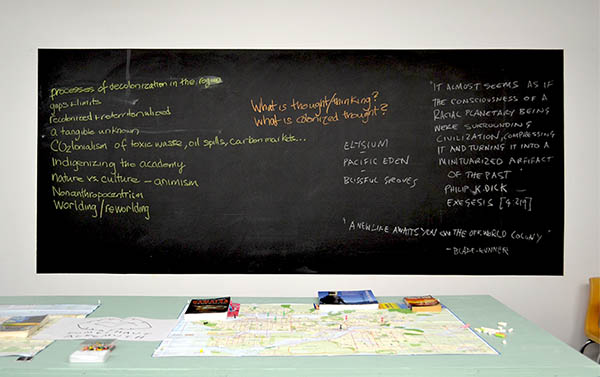 processes of decolonization in the rogue
gaps + limits
recolonized + reterritorialized
a tangible unknown
CO2olonialism of toxic waste, oil spills, carbon markets...
Indigenizing the academy
nature vs culture – animism
Nonanthropocentrism
Worlding / reworlding
What is thought/thinking?
What is colonized thought?
ELYSIUM
—
PACIFIC EDEN
—
BLISSFUL GROVES
"IT ALMOST SEEMS AS IF
THE CONSCIOUSNESS OF A
RACIAL PLANETARY BEING
WERE SURROUNDING
CIVILIZATION, COMPRESSING
IT AND TURNING IT INTO A
MINTUARIZED ARTIFACT
OF THE PAST"
PHILIP K. DICK
EXEGESIS [4:219]
"A NEW LIKE AWAITS YOU ON THE OFF WORLD COLONY"
- BLADE RUNNER